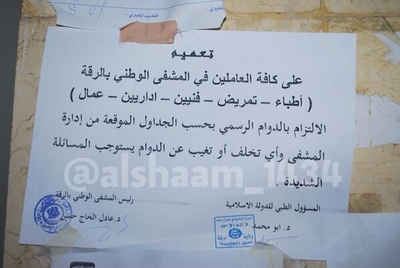 الطبيب المخبري
تعميم
على كافة العاملين في المشفى الوطني بالرقة
( أطباء – تمريض – فنيين – اداريين – عمال )
الالتزام بالدوام الرسمي بحسب الجداول الموقعة من إدارة
المشفى وأي تخلف أو تغيب عن الدوام يستوجب المسائلة
الشديدة .
@alshaam_1434
المسؤول الطبي للدولة الاسلامية
د. ابو محمد
رئيس المشفى الوطني بالرقة
د.عادل الحاج
لا اله الا الله
ولاية الرقة